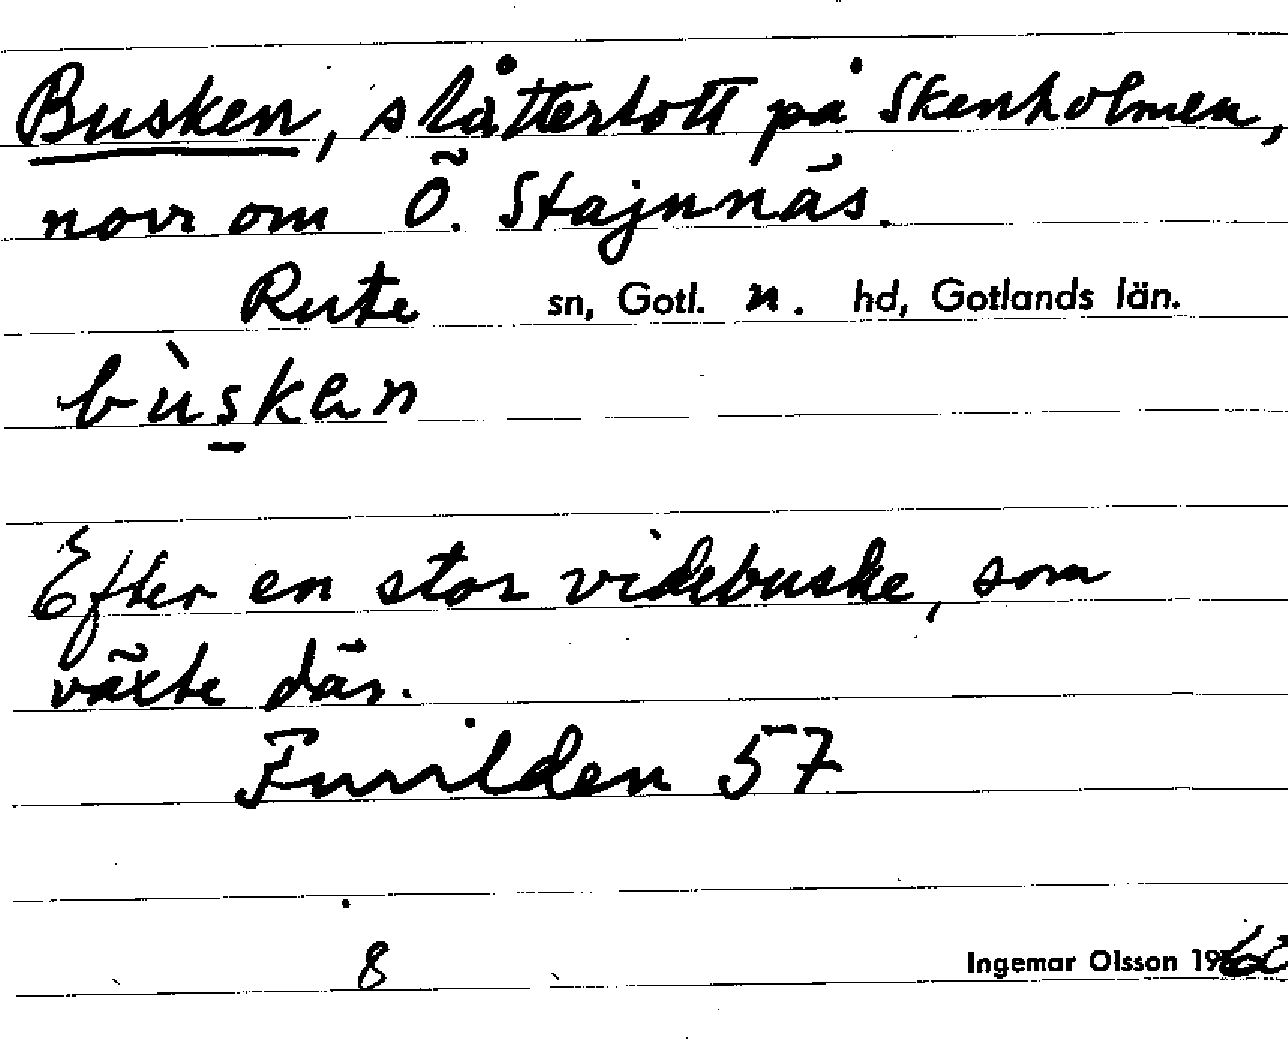 Busken, slåtterlott på Skenholmen,
norr om Ö. Stajnnäs.
Rute sn, Gotl. n. hd, Gotlands län.
bùskan
Efter en stor videbuske, som
växte där.
Furilden 57
8 Ingemar Olsson 1960